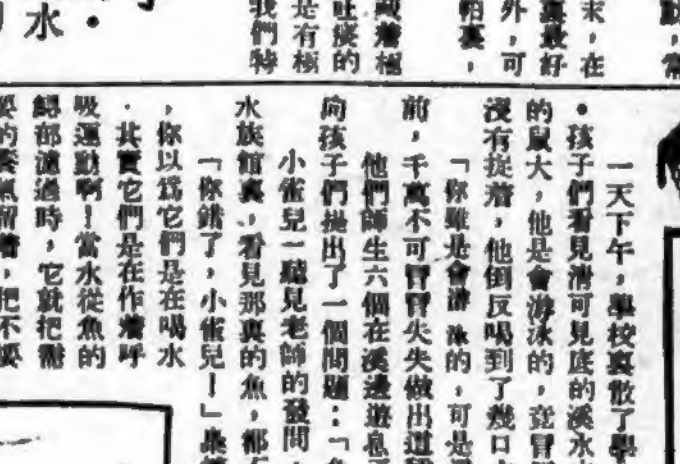 末，在
裏最好
外，可
帕裏，
戴着極
吐痰的
是有極
我們特
水
一天下午，學校裏散了學
。孩子們看見清可見底的溪水
的鼠大，他是會游泳的，竟冒
沒有捉着，他倒反喝到了幾口
「你雖是會游泳的，可是
前，千萬不可冒冒失失做出這種
他們師生六個在溪邊遊息
向孩子們提出了一個問題：「魚
小雀兒一聽見老師的發問
水族館裏，看見那裏的魚，都
「你錯了，小雀兒！」
，你以爲它們是在喝水
。其實它們是在作着呼
吸運動啊！當水從魚的
鰓部濾過時，它就把需
要的養氣留着，把不要